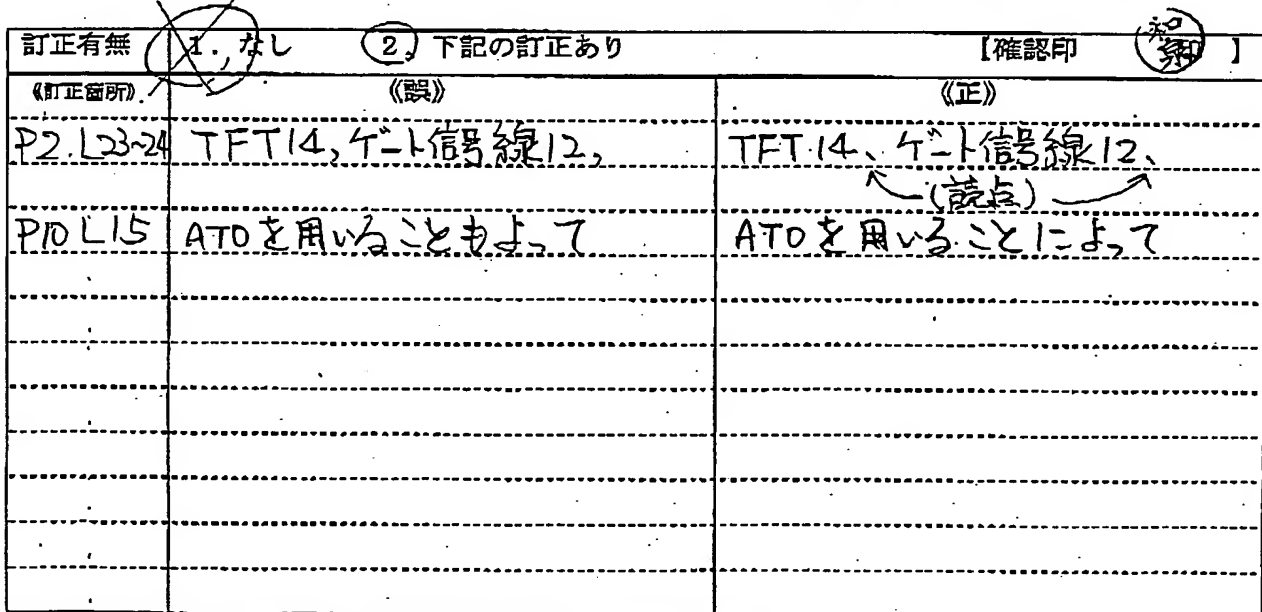 訂正有無 1. なし 2. 下記の訂正あり 【確認印 】
《訂正箇所》 《誤》 《正》
P2.L23~24 TFT14,ゲート信号線12, TFT14、ゲート信号線12、
(読点)
P10 L15 ATOを用いることもよって ATOを用いることによって